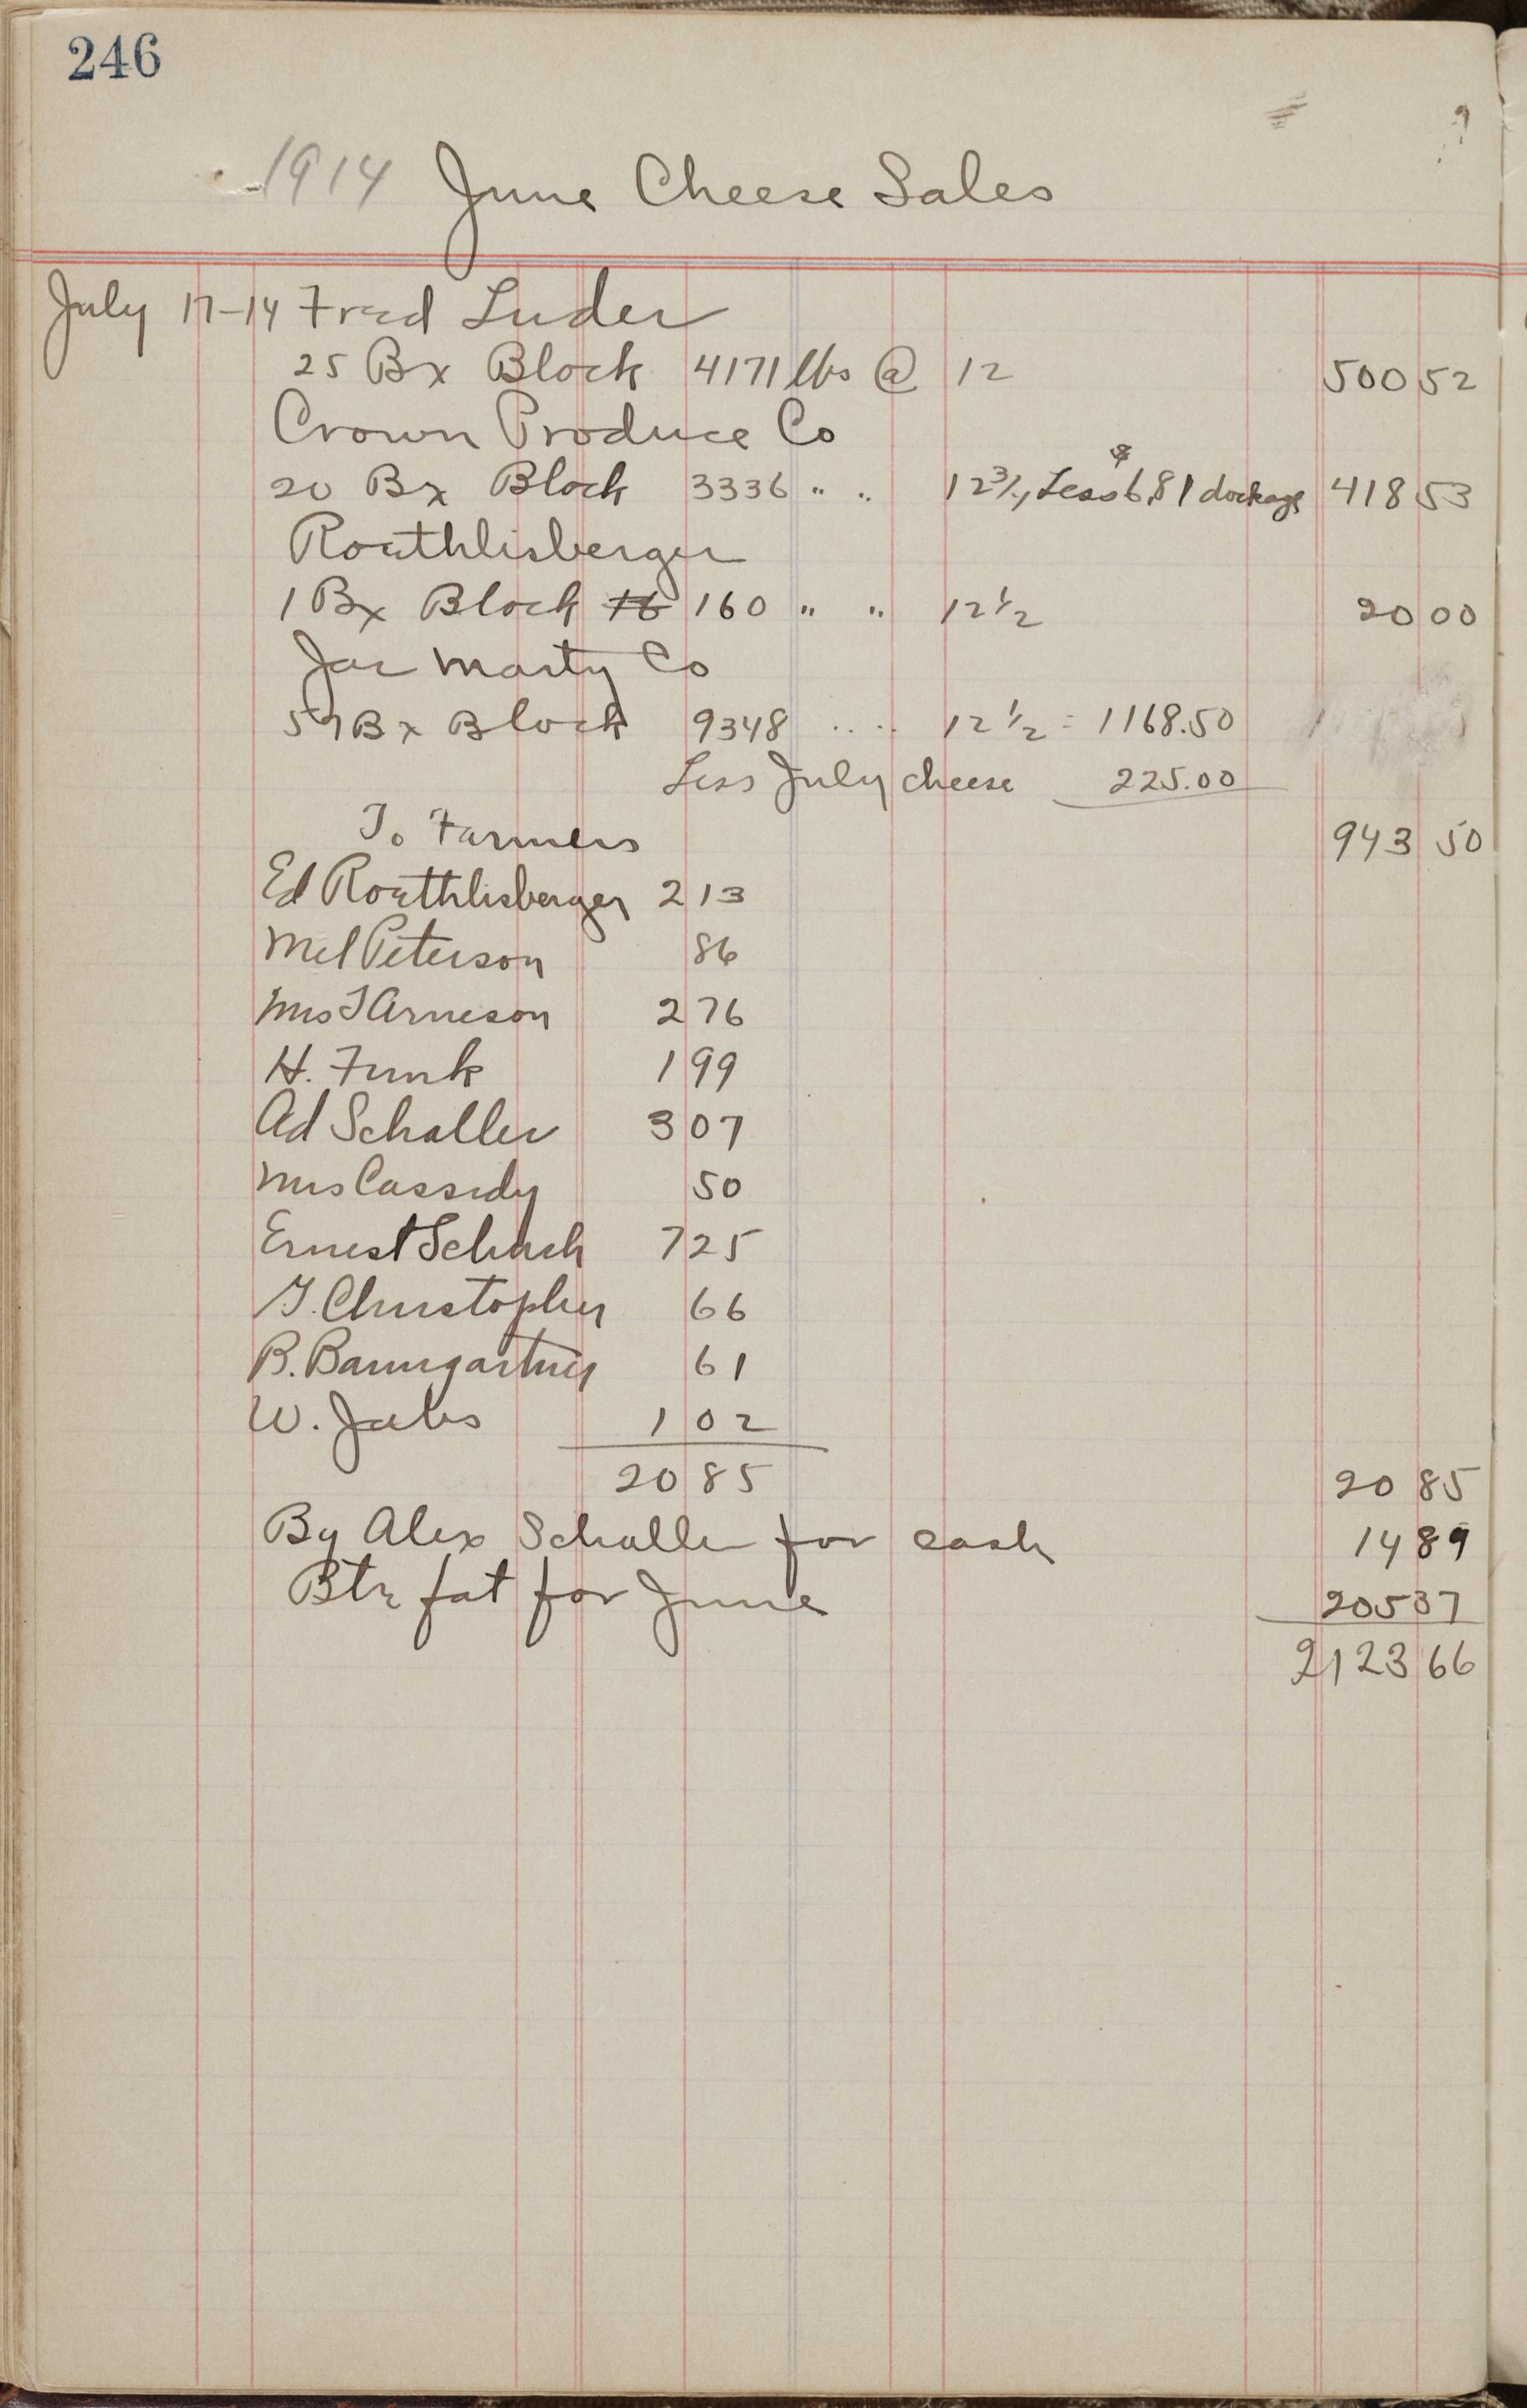 246
1914 June Cheese Sales
July 17-14 Fred Luder
25 Bx Block 4171 lbs @ 12 500 52
Crown Produce Co
20 Bx Block 3336 " " 12 3/4 Less $6.81 dockage 418 53
Roethlisberger
1 Bx Block 16 160 " " 12 1/2 20 00
Jac Marty Co
57 Bx Block 9348 " " 12 1/2 = 1168.50
Less July cheese 225.00
To Farmers 943 50
Ed Roethlisberger 2 13
Mel Peterson 86
Mrs T Arneson 2 76
H. Funk 1 99
Ad Schaller 3 07
Mrs Cassidy 50
Ernest Schuh 7 25
G. Christopher 66
B. Baumgartner 61
W. Jabs 1 02
20 85 20 85
By Alex Schaller for cash 14 89
Btr fat for June 205 37
2123 66